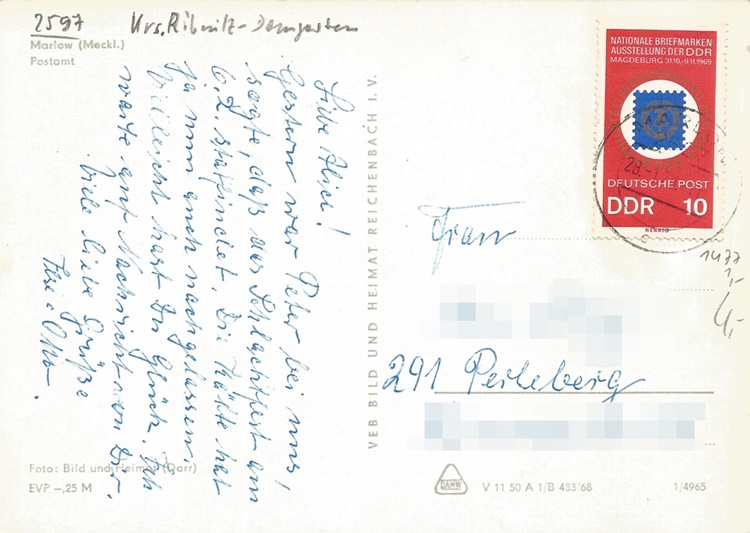 2597 Krs. Ribnitz-Damgarten
Marlow (Meckl.)
Postamt
Liebe Alice!
Gestern war Peter bei uns!
sagte, daß das Schlachtfest am
6.2. stattfindet. Die Kälte hat
ja nun auch nachgelassen.
Vielleicht hast Du Glück. Ich
warte auf Nachricht von Dir.
Viele liebe Grüße
Otto.
Foto: Bild und Heimat (Darr)
EVP –,25 M
VEB BILD UND HEIMAT REICHENBACH I. V.
NATIONALE BRIEFMARKEN
AUSSTELLUNG DER DDR
MAGDEBURG 31.10.-9.11.1969
DEUTSCHE POST
DDR 10
28.-1
1477
1,-
4,-
Frau
291 Perleberg
DAMW
V 11 50 A 1/B 433/68
1/4965